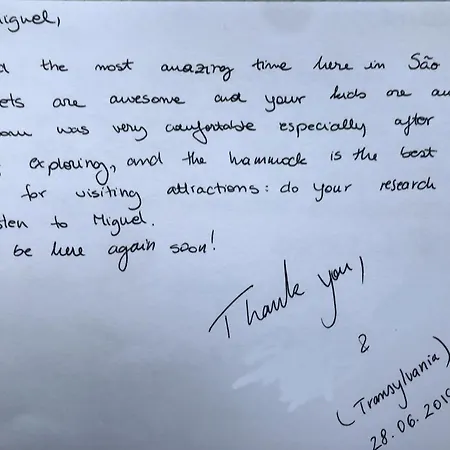 Miguel,
the most amazing time here in São
are awesome and your kids are
was very comfortable especially after
exploring, and the hammock is the best
for visiting attractions: do your research
to Miguel.
be here again soon!
Thank you,
&
(Transylvania)
28.06.2019